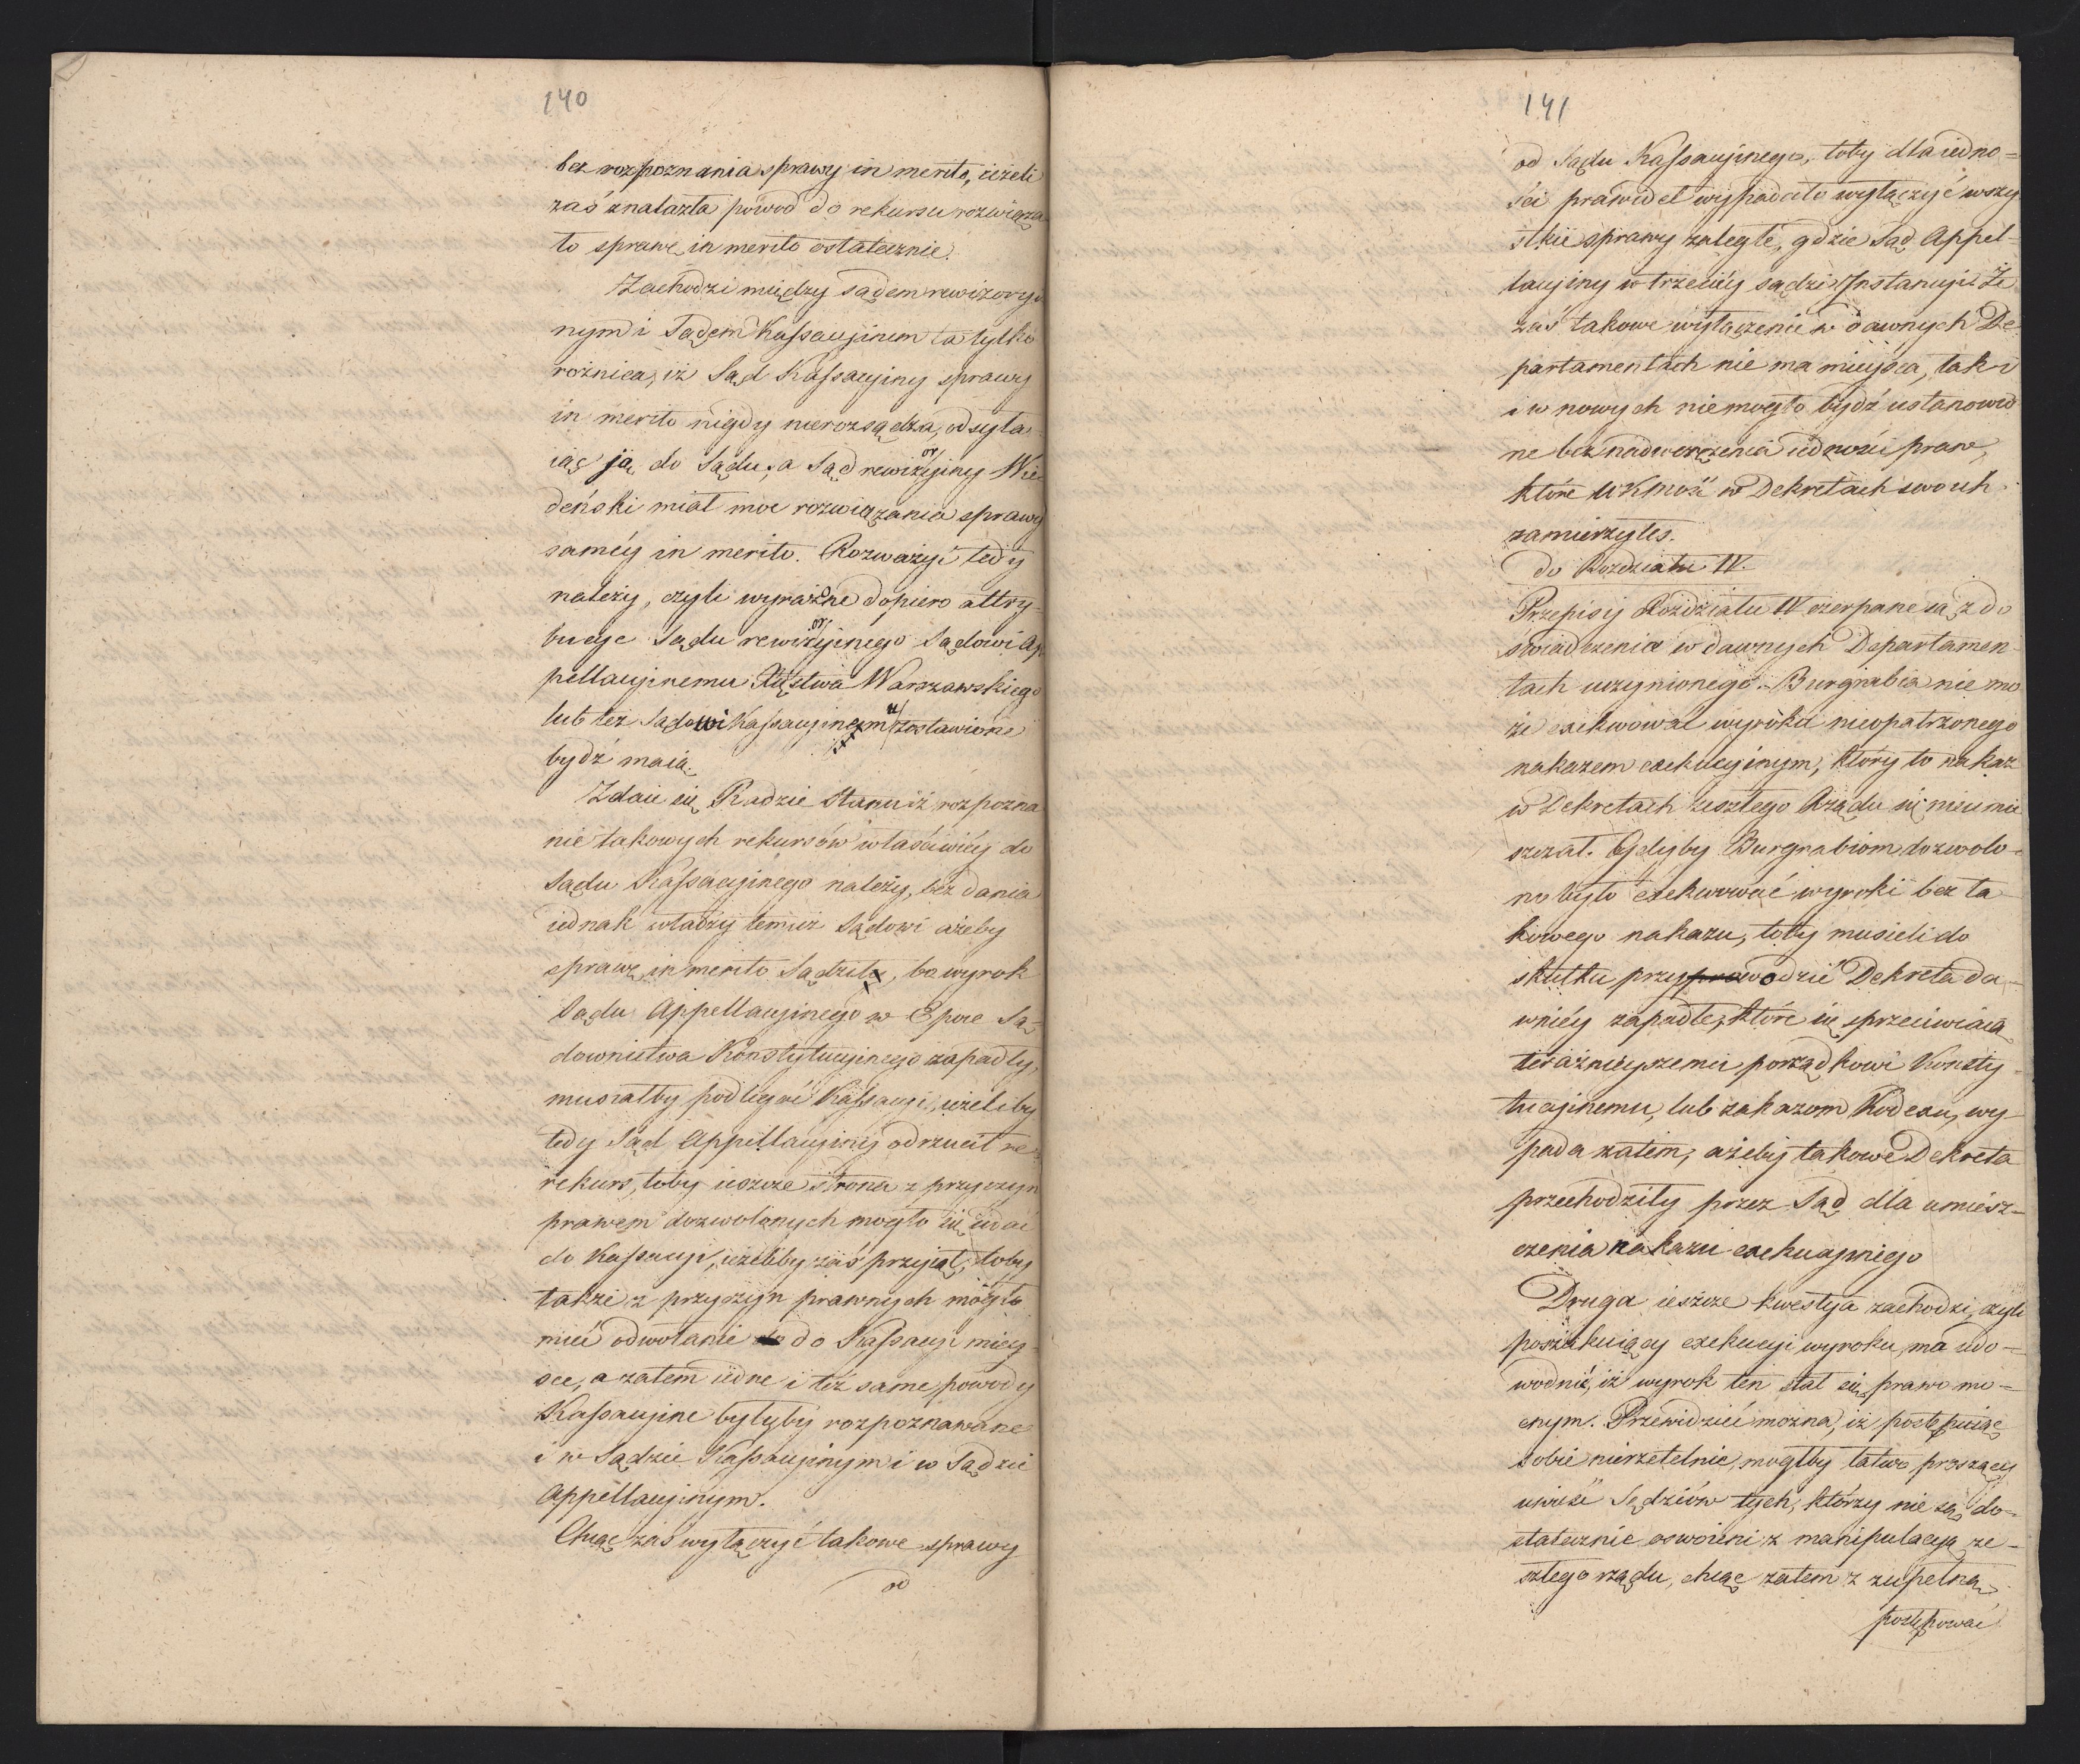 140
bez rozpoznania sprawy in merito, ieżeli
zaś znalazła powod do rekursu rozwiąza
ło sprawę in merito ostatecznie.
Zachodzi między sądem rewizory
nym i Sądem Kassacyjnem ta tylko
rożnica, iż Sąd Kassacyiny sprawy
in merito nigdy nierozsądza, odsyła
iąc ją do Sądu, a Sąd rewizoryiny Wie
deński miał moc rozwiązania sprawy
saméy in merito. Rozważyć tedy
należy, czyli wyrażone dopiero attry
bucye Sądu rewizoryinego Sądowi Ap
pellacyjnemu Xięstwa Warszawskiego
lub też Sądowi Kassacyinemu zostawione
bydź maią.
Zdaie się Radzie Stanu iż rozpozna
nie takowych rekursów właściwiéy do
Sądu Kassacyjnego należy, bez dania
iednak władzy temuż Sądowi ażeby
sprawę in merito Sądził, bo wyrok
Sądu Appellacyjnego w Epoce Są
downictwa Konstytucyjnego zapadły,
musiałby podlegać Kassacyi, ieżeliby
tedy Sąd Appellacyjny odrzucił re
rekurs, toby ieszcze strona z przyczyn
prawem dozwolonych mogła się udać
do Kassacyi, ieżeliby zaś przyiął, toby
także z przyczyn prawnych mogło
mieć odwołanie do Kassacyi miey
sce, a zatem iedne i też same powody
Kassacyjne byłyby rozpoznawane
i w Sądzie Kassacyjnym i w Sądzie
Appellacyjnym.
Chcąc zaś wyłączyć takowe sprawy
od
141
od Sądu Kassacyjnego, toby dla iedno=
ści prawideł wypadało wyłączyć wszy
stkie sprawy zaległe, gdzie Sąd Appel=
lacyjny w trzeciéy sądzi Instancyi. Że
zaś takowe wyłączenie w dawnych De
partamentach nie ma mieysca, tak i
i w nowych niemogło bydź ustanowio
ne bez nadwerężenia iedności praw,
które WKMość w Dekretach swoich
zamierzyłeś.
do Rozdziału IV.
Przepisy Rozdziału IV czerpane są z do
świadczenia w dawnych Departamen
tach uczynionego. Burgrabia nie mo
że exekwować wyroku nieopatrzonego
nakazem exekucyjnym, który to nakaz
w Dekretach zeszłego Rządu się nieumie
szczał. Gdyby Burgrabiom dozwolo=
no było exekwować wyroki bez ta
kowego nakazu, toby musieli do
skutku przyprowodzić Dekreta da=
wniéy zapadłe, które się sprzeciwiaią
teraźnieyszemu porządkowi Konsty
tucyjnemu, lub zakazom Kodexu, wy=
pada zatem, ażeby takowe Dekreta
przechodziły przez Sąd dla umiesz=
czenia nakazu exekucyinego
Druga ieszcze kwestya zachodzi, czyli
poszukuiący exekucyi wyroku, ma udo=
wodnić, iż wyrok ten stał się prawo mo=
cnym. Przewidzieć można, iż postępuiąc
sobie nierzetelnie, mogłby łatwo proszący
uwieść Sędziów tych, którzy nie są do=
statecznie oswoieni z manipulacyą ze=
szłego rządu, chcąc zatem z zupełną
postępować